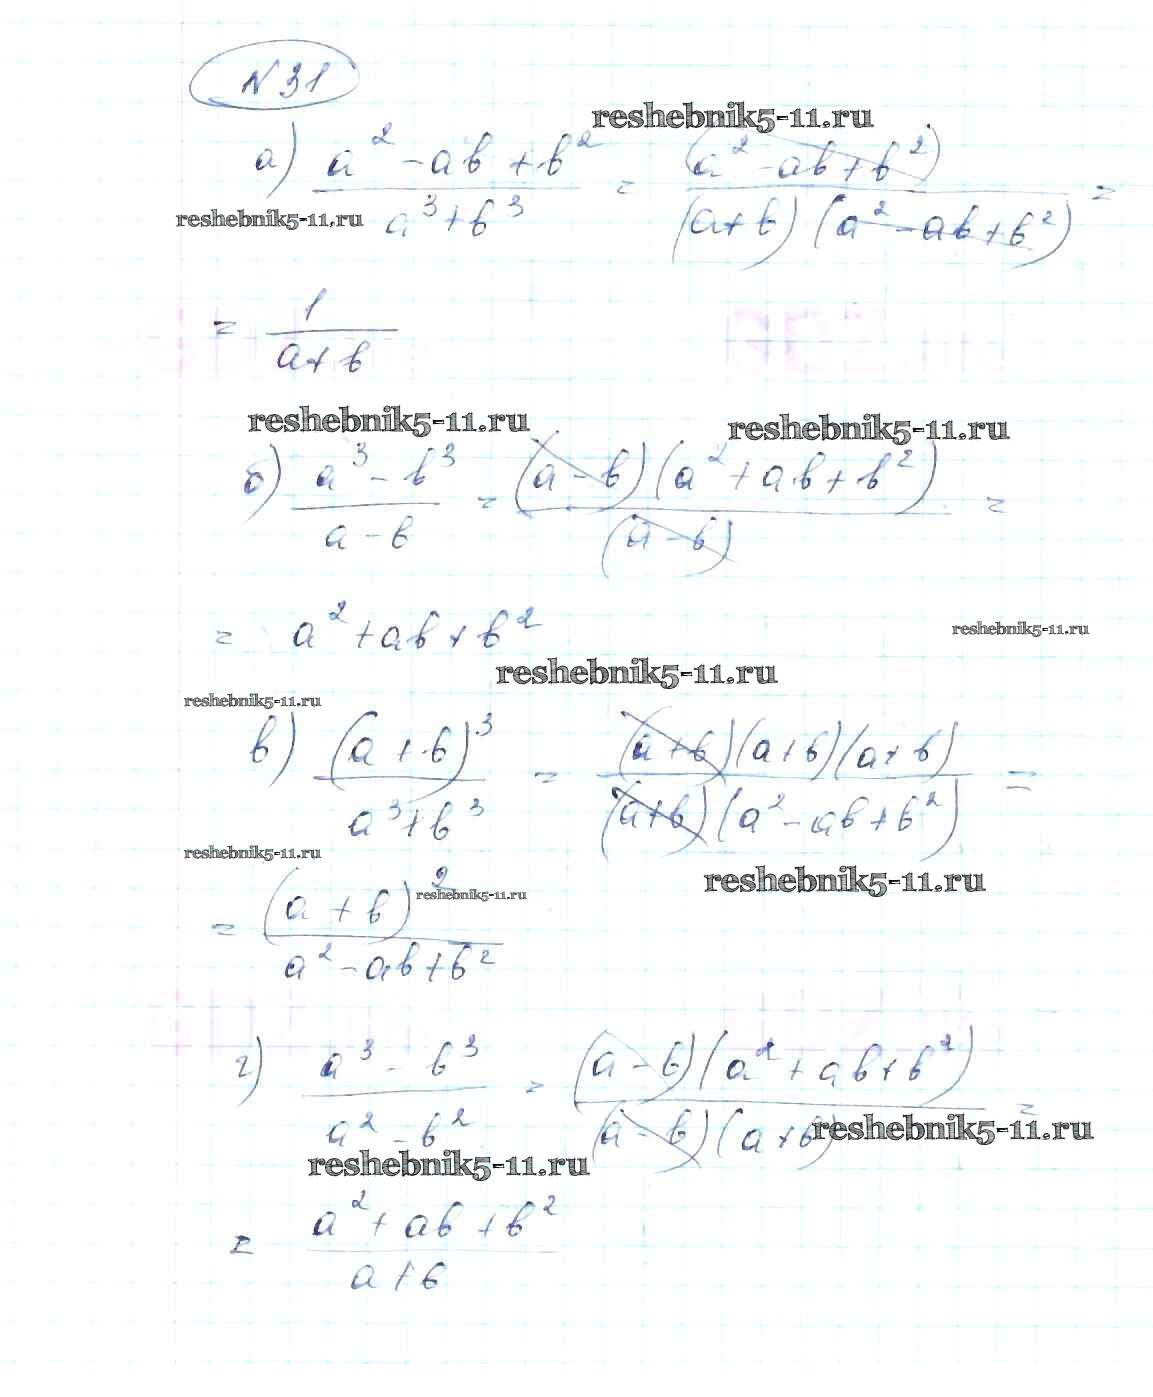 N 31
reshebnik5-11.ru
а) (a² - ab + b²)/(a³ + b³) = (a² - ab + b²)/((a + b)(a² - ab + b²)) =
reshebnik5-11.ru
= 1/(a + b)
reshebnik5-11.ru reshebnik5-11.ru
б) (a³ - b³)/(a - b) = ((a - b)(a² + ab + b²))/(a - b) =
= a² + ab + b²
reshebnik5-11.ru
reshebnik5-11.ru
reshebnik5-11.ru
в) (a + b)³/(a³ + b³) = ((a + b)(a + b)(a + b))/((a + b)(a² - ab + b²)) =
reshebnik5-11.ru
reshebnik5-11.ru
= (a + b)²/(a² - ab + b²)
reshebnik5-11.ru
г) (a³ - b³)/(a² - b²) = ((a - b)(a² + ab + b²))/((a - b)(a + b)) =
reshebnik5-11.ru
reshebnik5-11.ru
= (a² + ab + b²)/(a + b)